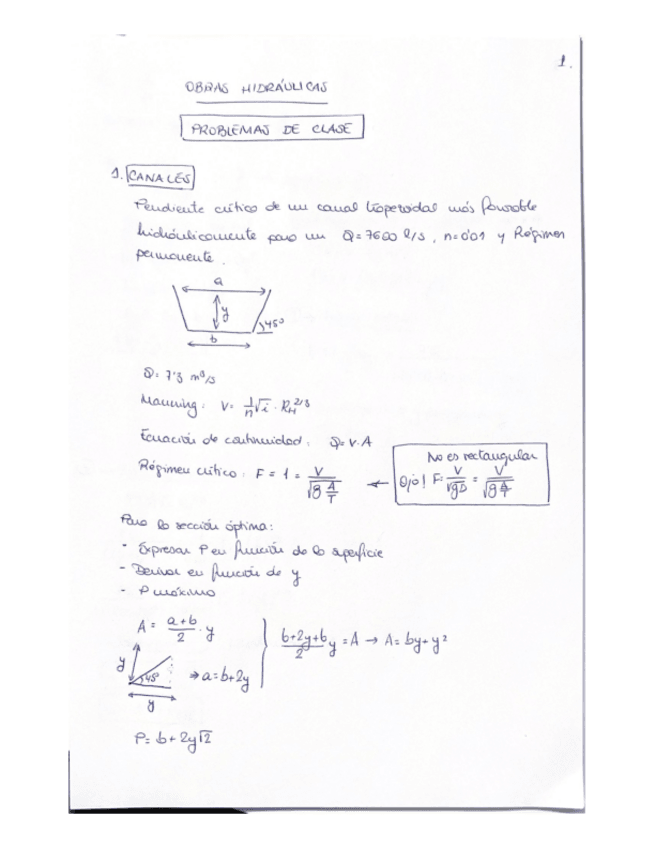 1.
OBRAS HIDRÁULICAS
PROBLEMAS DE CLASE
1. CANALES
Pendiente crítica de un canal trapezoidal más favorable
hidráulicamente para un Q=7600 l/s, n=0'01 y Régimen
permanente.
a
y
45°
b
Q= 7'3 m³/s
Manning: V= 1/n √i · R_H^2/3
Ecuación de continuidad: Q=V·A
Régimen crítico: F = 1 = V/√(g A/T) ← Ojo! F= V/√gD = V/√(g A/T)
No es rectangular
Para la sección óptima:
- Expresar P en función de la superficie
- Derivar en función de y
- P máximo
A = (a+b)/2 · y
(b+2y+b)/2 y = A → A= by+y²
y 45° ⇒ a=b+2y
y
P= b+2y√2